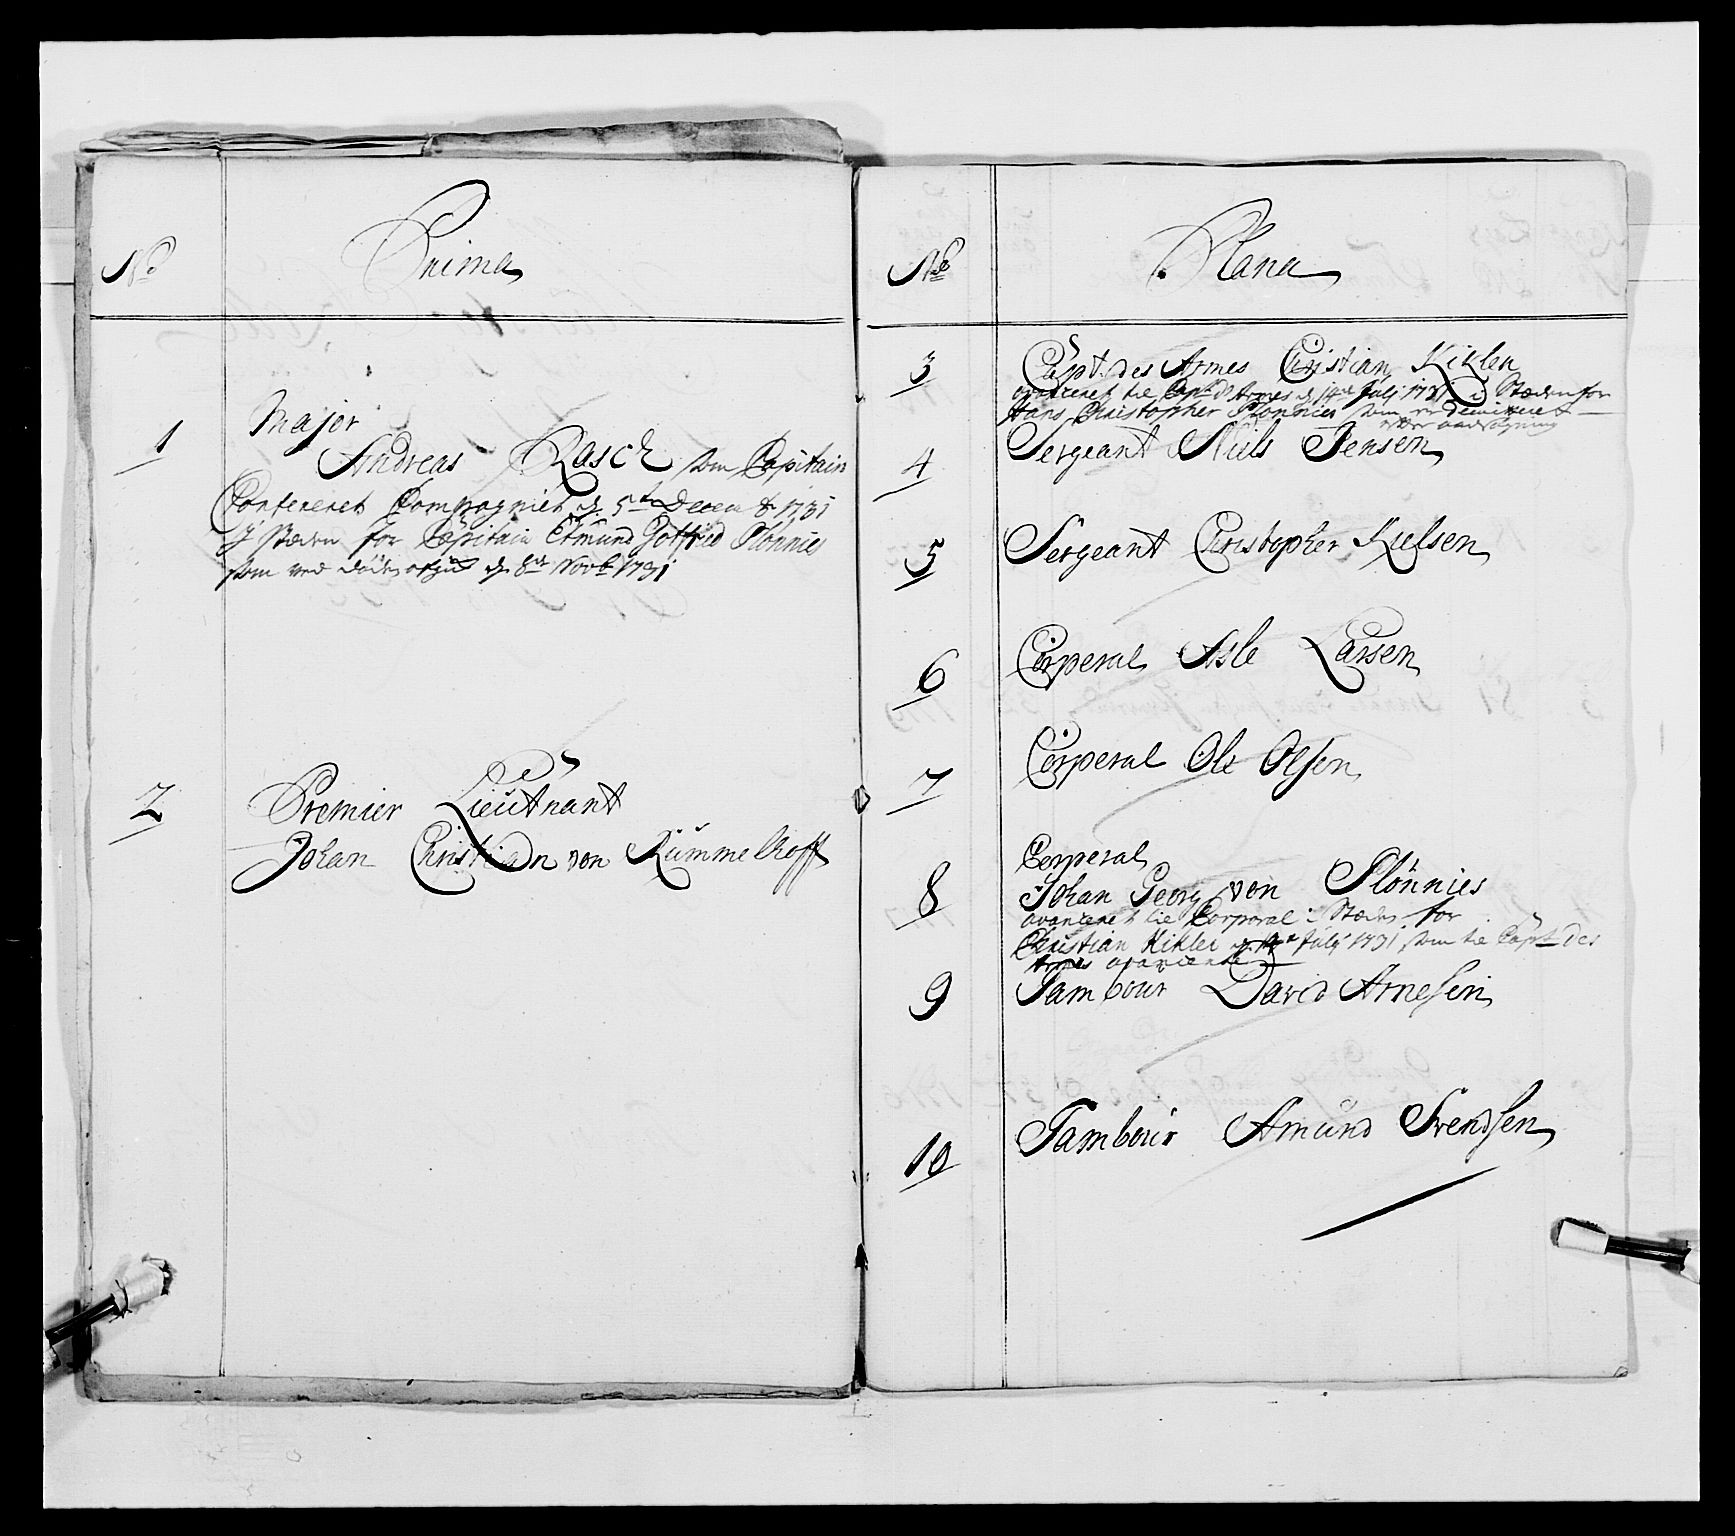 No
Prima
1
Major
Andreas Rasch som Capitain
Confereret Compagniet d. 5te Decembr 1731
J stæden for Capitain Etmund Gotfried Plönnies
som ved døden afgik d. 8de Novbr 1731
2
Premier Lieutnant
Johan Christian von Rümmelhoff
No
Plana
3
Capt. des Armes Christian Kikler
avanceret til Capt d'Armes d. 14de Julj 1731 i Stæden for
Hans Christopher Plonnies som er demitteret
efter ansøgning
4
Sergeant Niels Jensen
5
Sergeant Christopher Kielsen
6
Corperal Asle Larsen
7
Corperal Ole Olsen
8
Corperal
Johan Georg von Plönnies
avanceret til Corporal i Stæden for
Christian Kikler d. 14de Julij 1731 som til Capt des
Armes avancerede
9
Tambour David Arnesen
10
Tambour Amund Svendsen